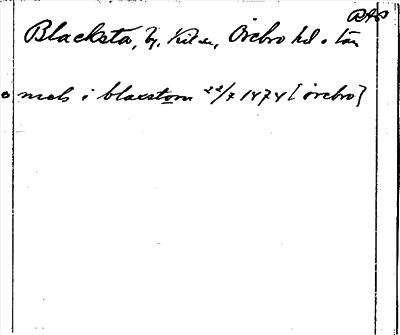 DAS
Blacksta, by, Kil sn, Örebro hd o län
o mels i blaxstom 22/7 1474 [örebro]